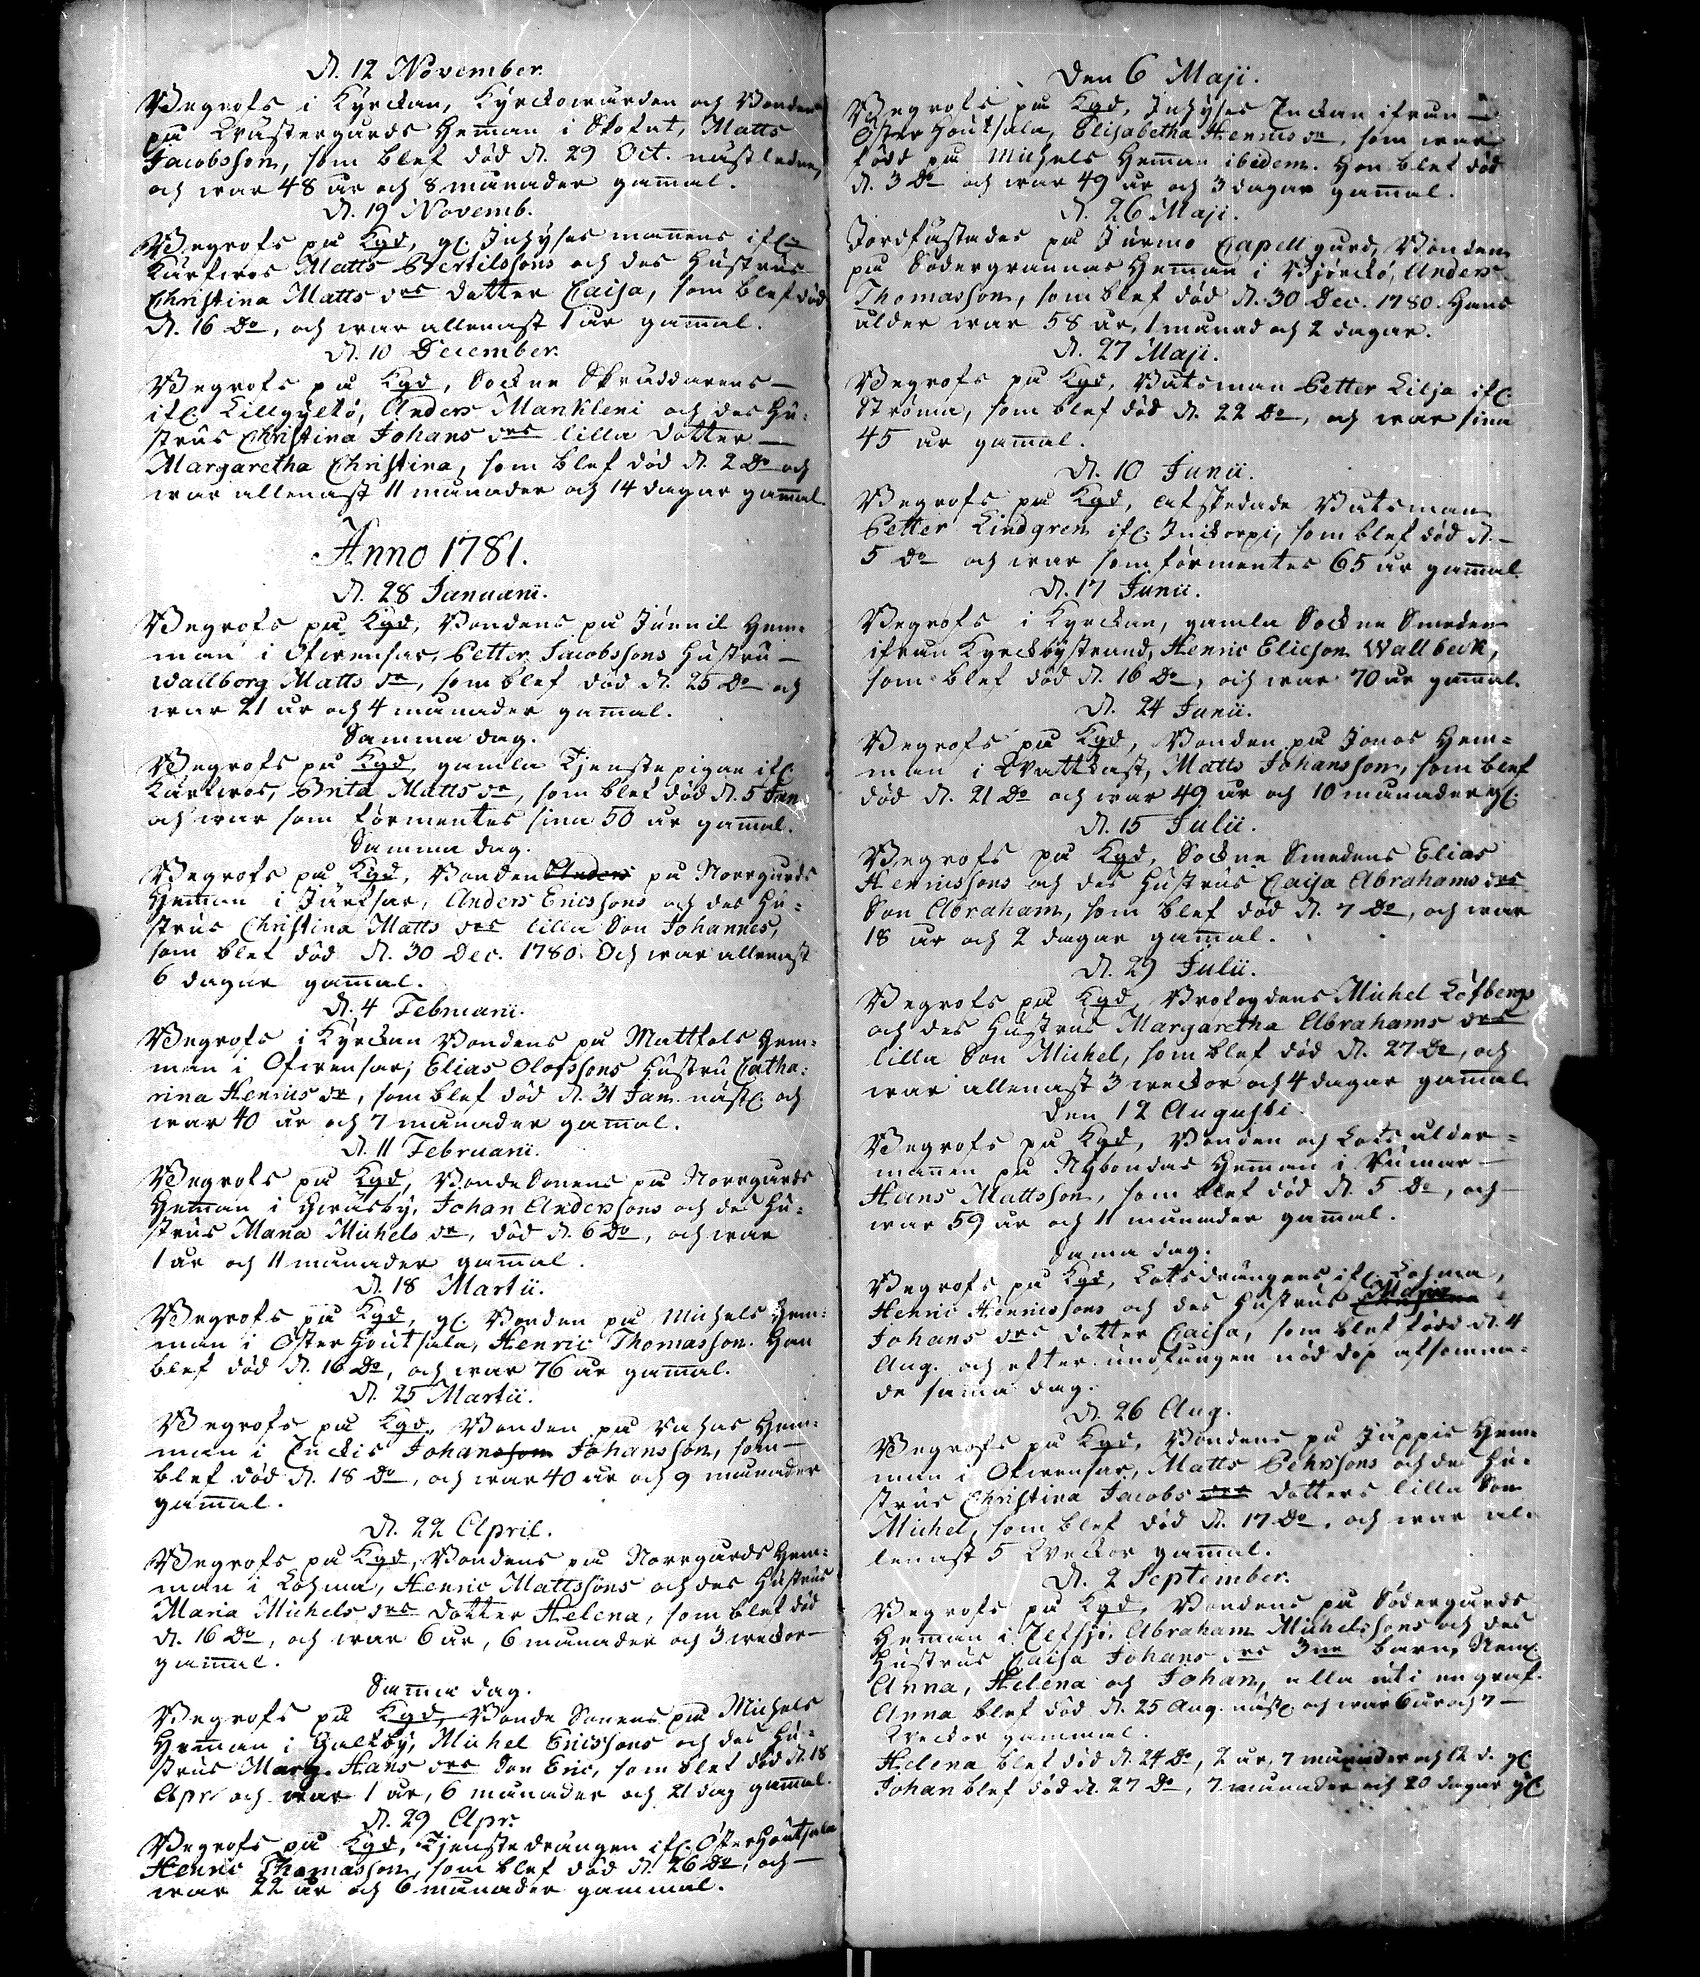 D. 12 November.
Begrofs i Kyrckan, Kyrckowärden och Bonden
på Wästergårds Heman i Skofat, Matts
Jacobsson, som blef död d. 29 Oct. nästleden,
och war 48 år och 8 månader gamal.
D. 19 Novemb.
Begrofs på Kgd, gl. Inhyses manens ifl.
Kärferos Matts Bertilssons och des Hustrus
Christina Matts drs dotter Caisa, som blef död
d. 16 Do, och war allenast 1 år gammal.
D. 10 December.
Begrofs på Kgd, Sockne Skräddarens
ifl. Lillgyltö, Anders Mankleni och des Hu=
strus Christina Johans drs lilla dotter
Margaretha Christina, som blef död d. 2 Do och
war allenast 11 månader och 14 dagar gamal.
Anno 1781.
D. 28 Januarii.
Begrofs på Kgd, Bondens på Jäunil Hem=
man i Ofwensar, Petter Jacobssons Hustru
Wallborg Matts dr, som blef död d. 25 Do och
war 21 år och 4 månader gamal.
Samma dag.
Begrofs på Kgd gamla Tjenstepigan ifl.
Kärferos, Brita Matts dr, som blef död d. 5 Jan
och war som förmentes sina 50 år gamal.
Samma dag.
Begrofs på Kgd, Bonden Anders på Norrgårds
Heman i Järfsar, Anders Ericssons och des Hu=
strus Christina Matts drs lilla Son Johannes,
som blef död d. 30 Dec. 1780. Och war allenast
6 dagar gamal.
D. 4 Februarii.
Begrofs i Kyrckan Bondens på Mattfols Hem=
man i Ofwensar, Elias Olofssons Hustru Catha=
rina Henrics dr, som blef död d. 31 Jan. nästl. och
war 40 år och 7 månader gamal.
D. 11 Februarii.
Begrofs på Kgd, Bonde Sonens på Norrgårds
Heman i Hwäsby, Johan Anderssons och des Hu=
strus Maria Michels dr, död d. 6 Do, och war
1 år och 11 månader gamal.
D. 18 Martii.
Begrofs på Kgd, gl. Bonden på Michels Hem=
man i Öster Houtsala, Henric Thomasson. Han
blef död d. 16 Do, och war 76 år gamal.
D. 25 Martii.
Begrofs på Kgd, Bonden på Rahas Hem=
man i Enckis Johansson Johansson, som
blef död d. 18 Do, och war 40 år och 9 månader
gamal.
D. 22 April.
Begrofs på Kgd, Bondens på Norrgårds Hem=
man i Lohma, Henric Mattssons och des Hustrus
Maria Michels drs dotter Helena, som blef död
d. 16 Do, och war 6 år, 6 månader och 3 weckor
gamal.
Samma dag.
Begrofs på Kgd Bonde Sonens på Michels
Heman i Galtby, Michel Ericssons och des Hu=
strus Marg. Hans drs Son Eric, som blef död d. 18
Apr. och war 1 år, 6 månader och 21 dag gamal.
D. 29 Apr.
Begrofs på Kgd, Tjenstedrängen ifl. Öster Houtsala
Henric Thomasson, som blef död d. 26 Do, och
war 22 år och 6 månader gammal.
Den 6 Maji.
Begrofs på Kgd, Inhyses Enckan ifrån
Öster Houtsala, Elisabetha Henrics dr, som war
född på Michels Heman ibidem. Hon blef död
d. 3 Do och war 49 år och 3 dagar gamal.
D. 26 Maji.
Jordfästades på Jurmo Capell gård, Bonden
på Södergrannas Heman i Björckö, Anders
Thomasson, som blef död d. 30 Dec. 1780. Hans
ålder war 58 år, 1 månad och 2 dagar.
D. 27 Maji.
Begrofs på Kgd, Båtsman Petter Lilja ifl.
Ströma, som blef död d. 22 Do, och war sina
45 år gamal.
D. 10 Junii.
Begrofs på Kgd, afskedade Båtsman
Petter Lindgren ifl. Inickorpi, som blef död d.
5 Do och war som förmentes 65 år gamal.
D. 17 Junii.
Begrofs i Kyrckan, gamla Sockne Smeden
ifrån Kyrckbystrand, Henric Elieson Wallbeck,
som blef död d. 16 Do, och war 70 år gamal.
D. 24 Junii.
Begrofs på Kgd, Bonden på Jonos Hem=
man i Wattkast, Matts Johansson, som blef
död d. 21 Do och war 49 år och 10 månader gl.
D. 15 Julii.
Begrofs på Kgd, Sockne Smedens Elias
Henricssons och des Hustrus Caisa Abrahams drs
Son Abraham, som blef död d. 7 Do, och war
18 år och 2 dagar gamal.
D. 29 Julii.
Begrofs på Kgd, Brofogdens Michel Löfbergs
och des Hustrus Margaretha Abrahams drs
lilla Son Michel, som blef död d. 27 Do, och
war allenast 3 weckor och 4 dagar gamal.
Den 12 Augusti.
Begrofs på Kgd, Bonden och Lots ålder=
manen på Nybondas Heman i Rumar
Hans Mattsson, som blef död d. 5 Do, och
war 59 år och 11 månader gamal.
Sama dag.
Begrofs på Kgd, Lotsdrängens ifl. Lohma,
Henric Henricssons och des Hustrus Maria
Johans drs dotter Caisa, som blef född d. 4
Aug. och efter undfången nöd dop afsomna=
de sama dag.
D. 26 Aug.
Begrofs på Kgd, Bondens på Jäppis Hem=
man i Ofwensar, Matts Pehrssons och des Hu=
strus Christina Jacobs drs dotters lilla Son
Michel, som blef död d. 17 Do, och war al=
lenast 5 Weckor gamal.
D. 2 September.
Begrofs på Kgd, Bondens på Södergårds
Heman i Retsjö, Abraham Michelssons och des
Hustrus Caisa Johans drs 3ne barn, Neml.
Anna, Helena och Johan, alla uti en graf.
Anna blef död d. 25 Aug. nästl. och war 6 år och 7
Weckor gammal.
Helena blef död d. 24 Do, 2 år, 7 månader och 12 d. gl.
Johan blef död d. 27 Do, 7 månader och 20 dagar gl.